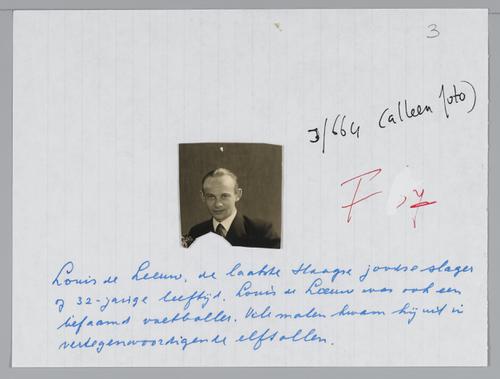 3
J/664 (alleen foto)
F
Louis de Leeuw, de laatste Haagse joodse slager
op 32-jarige leeftijd. Louis de Leeuw was ook een
befaamd voetballer. Vele malen kwam hij uit in
vertegenwoordigende elftallen.